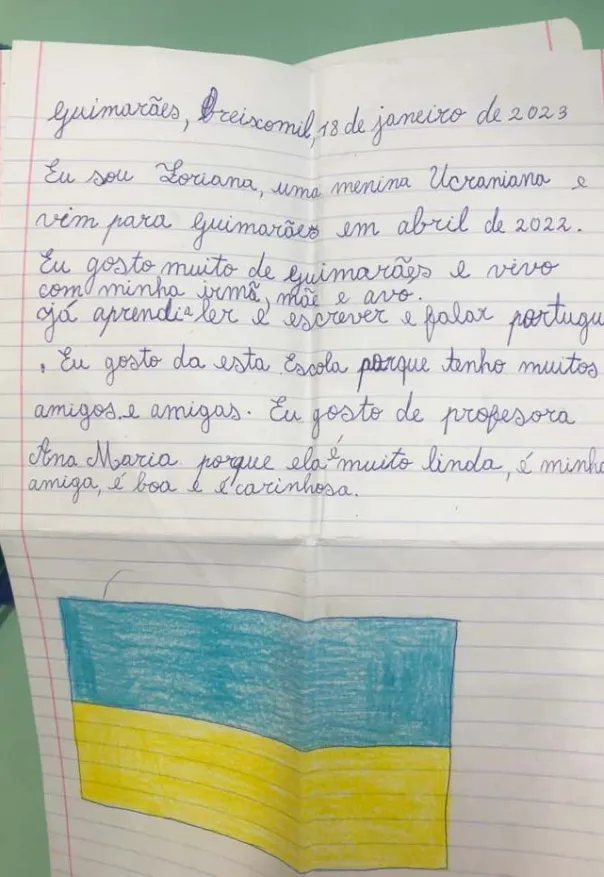 Guimarães, Creixomil, 18 de janeiro de 2023
Eu sou Zoriana, uma menina Ucraniana e
vim para Guimarães em abril de 2022.
Eu gosto muito de Guimarães e vivo
com minha irmã, mãe e avo.
Já aprendi a ler e escrever e falar portugu
. Eu gosto da esta Escola porque tenho muitos
amigos e amigas. Eu gosto de profesora
Ana Maria porque ela é muito linda, é minha
amiga, é boa e é carinhosa.